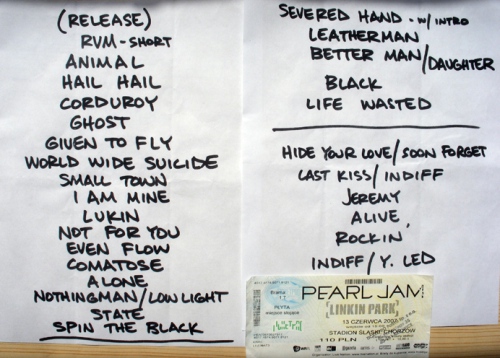 (RELEASE)
RVM-SHORT
ANIMAL
HAIL HAIL
CORDUROY
GHOST
GIVEN TO FLY
WORLD WIDE SUICIDE
SMALL TOWN
I AM MINE
LUKIN
NOT FOR YOU
EVEN FLOW
COMATOSE
ALONE
NOTHINGMAN/LOW LIGHT
STATE
SPIN THE BLACK
SEVERED HAND - W/ INTRO
LEATHERMAN
BETTER MAN/DAUGHTER
BLACK
LIFE WASTED
HIDE YOUR LOVE/SOON FORGET
LAST KISS/INDIFF
JEREMY
ALIVE
ROCKIN'
INDIFF/Y. LED
PEARL JAM
LINKIN PARK
13 CZERWCA 2007
STADION ŚLĄSKI CHORZÓW
110 PLN
PŁYTA